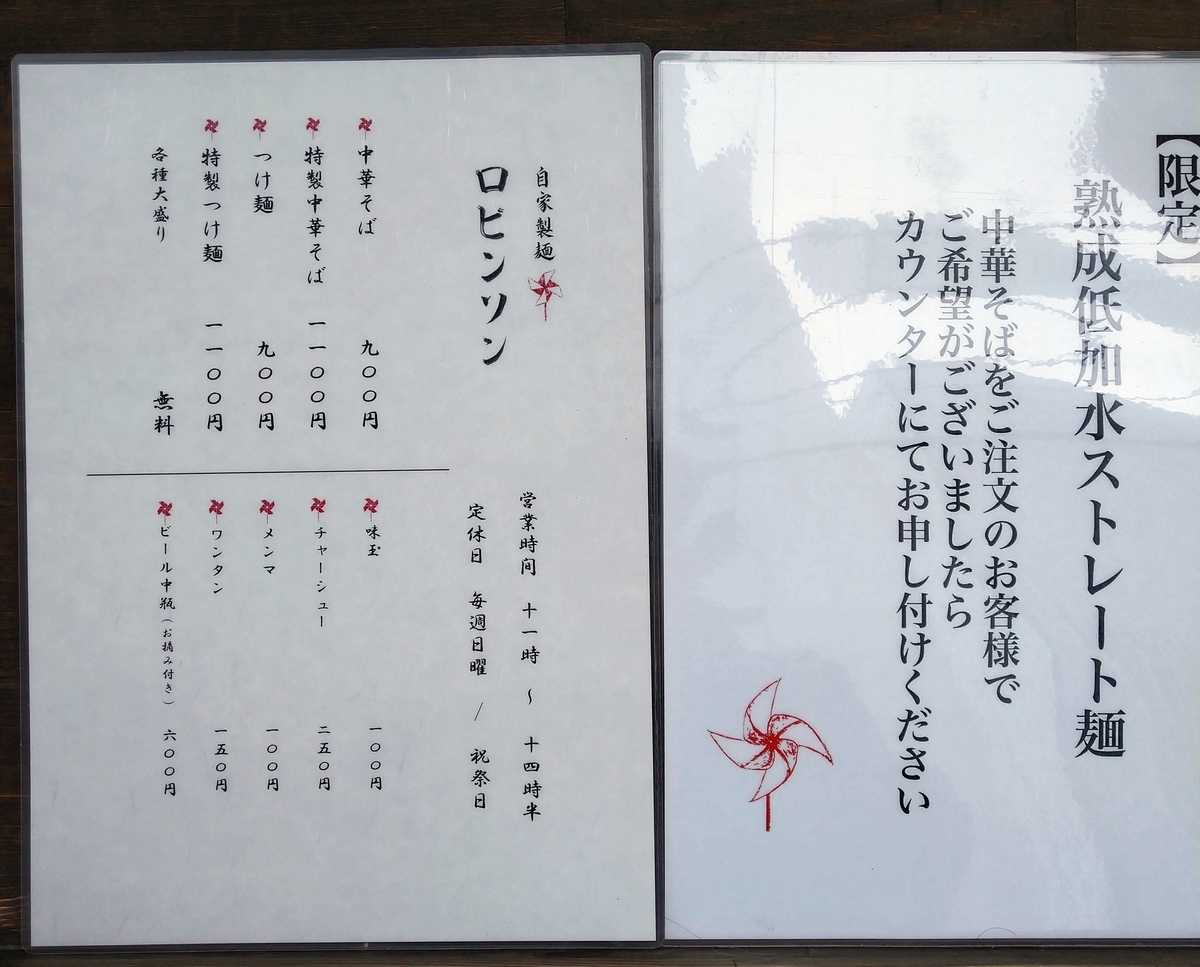 【限定】
熟成低加水ストレート麺
中華そばをご注文のお客様で
ご希望がございましたら
カウンターにてお申し付けください
自家製麺
ロビンソン
中華そば 九〇〇円
特製中華そば 一一〇〇円
つけ麺 九〇〇円
特製つけ麺 一一〇〇円
各種大盛り 無料
営業時間 十一時 〜 十四時半
定休日 毎週日曜 / 祝祭日
味玉 一〇〇円
チャーシュー 二五〇円
メンマ 一〇〇円
ワンタン 一五〇円
ビール中瓶（お摘み付き） 六〇〇円